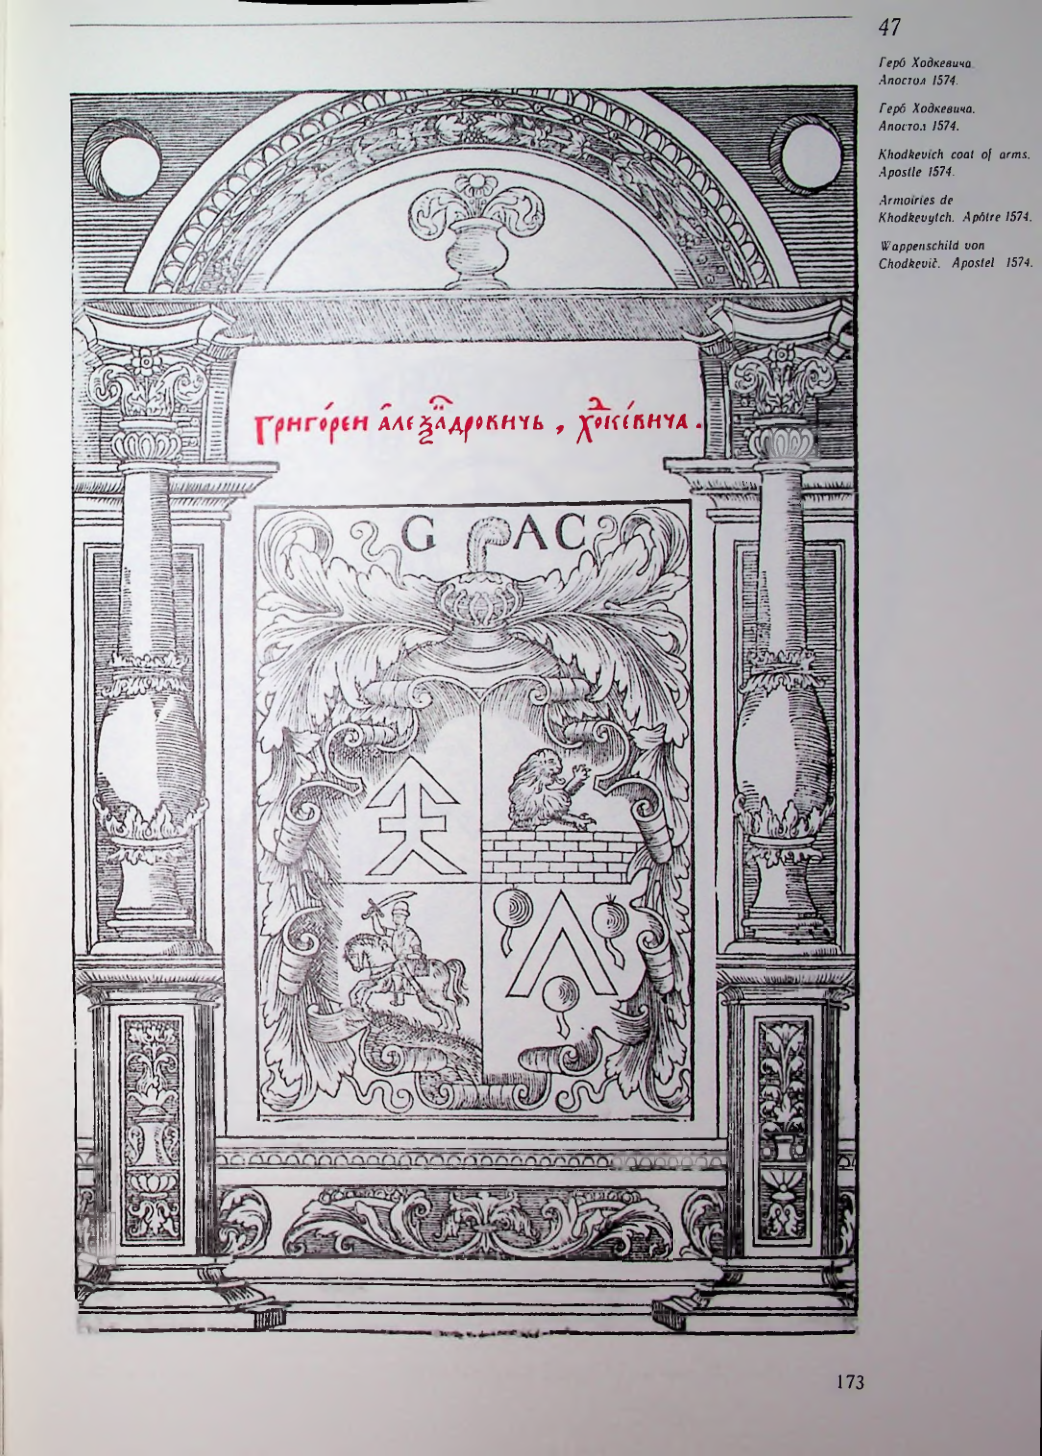 47
Герб Ходкевича.
Апостол 1574.
Герб Ходкевича.
Апостол 1574.
Khodkevich coat of arms.
Apostle 1574.
Armoiries de
Khodkevytch. Apôtre 1574.
Wappenschild von
Chodkevič. Apostel 1574.
григо́реи а҆леѯа́дровичь, хⷣоке́вича.
G AC
173